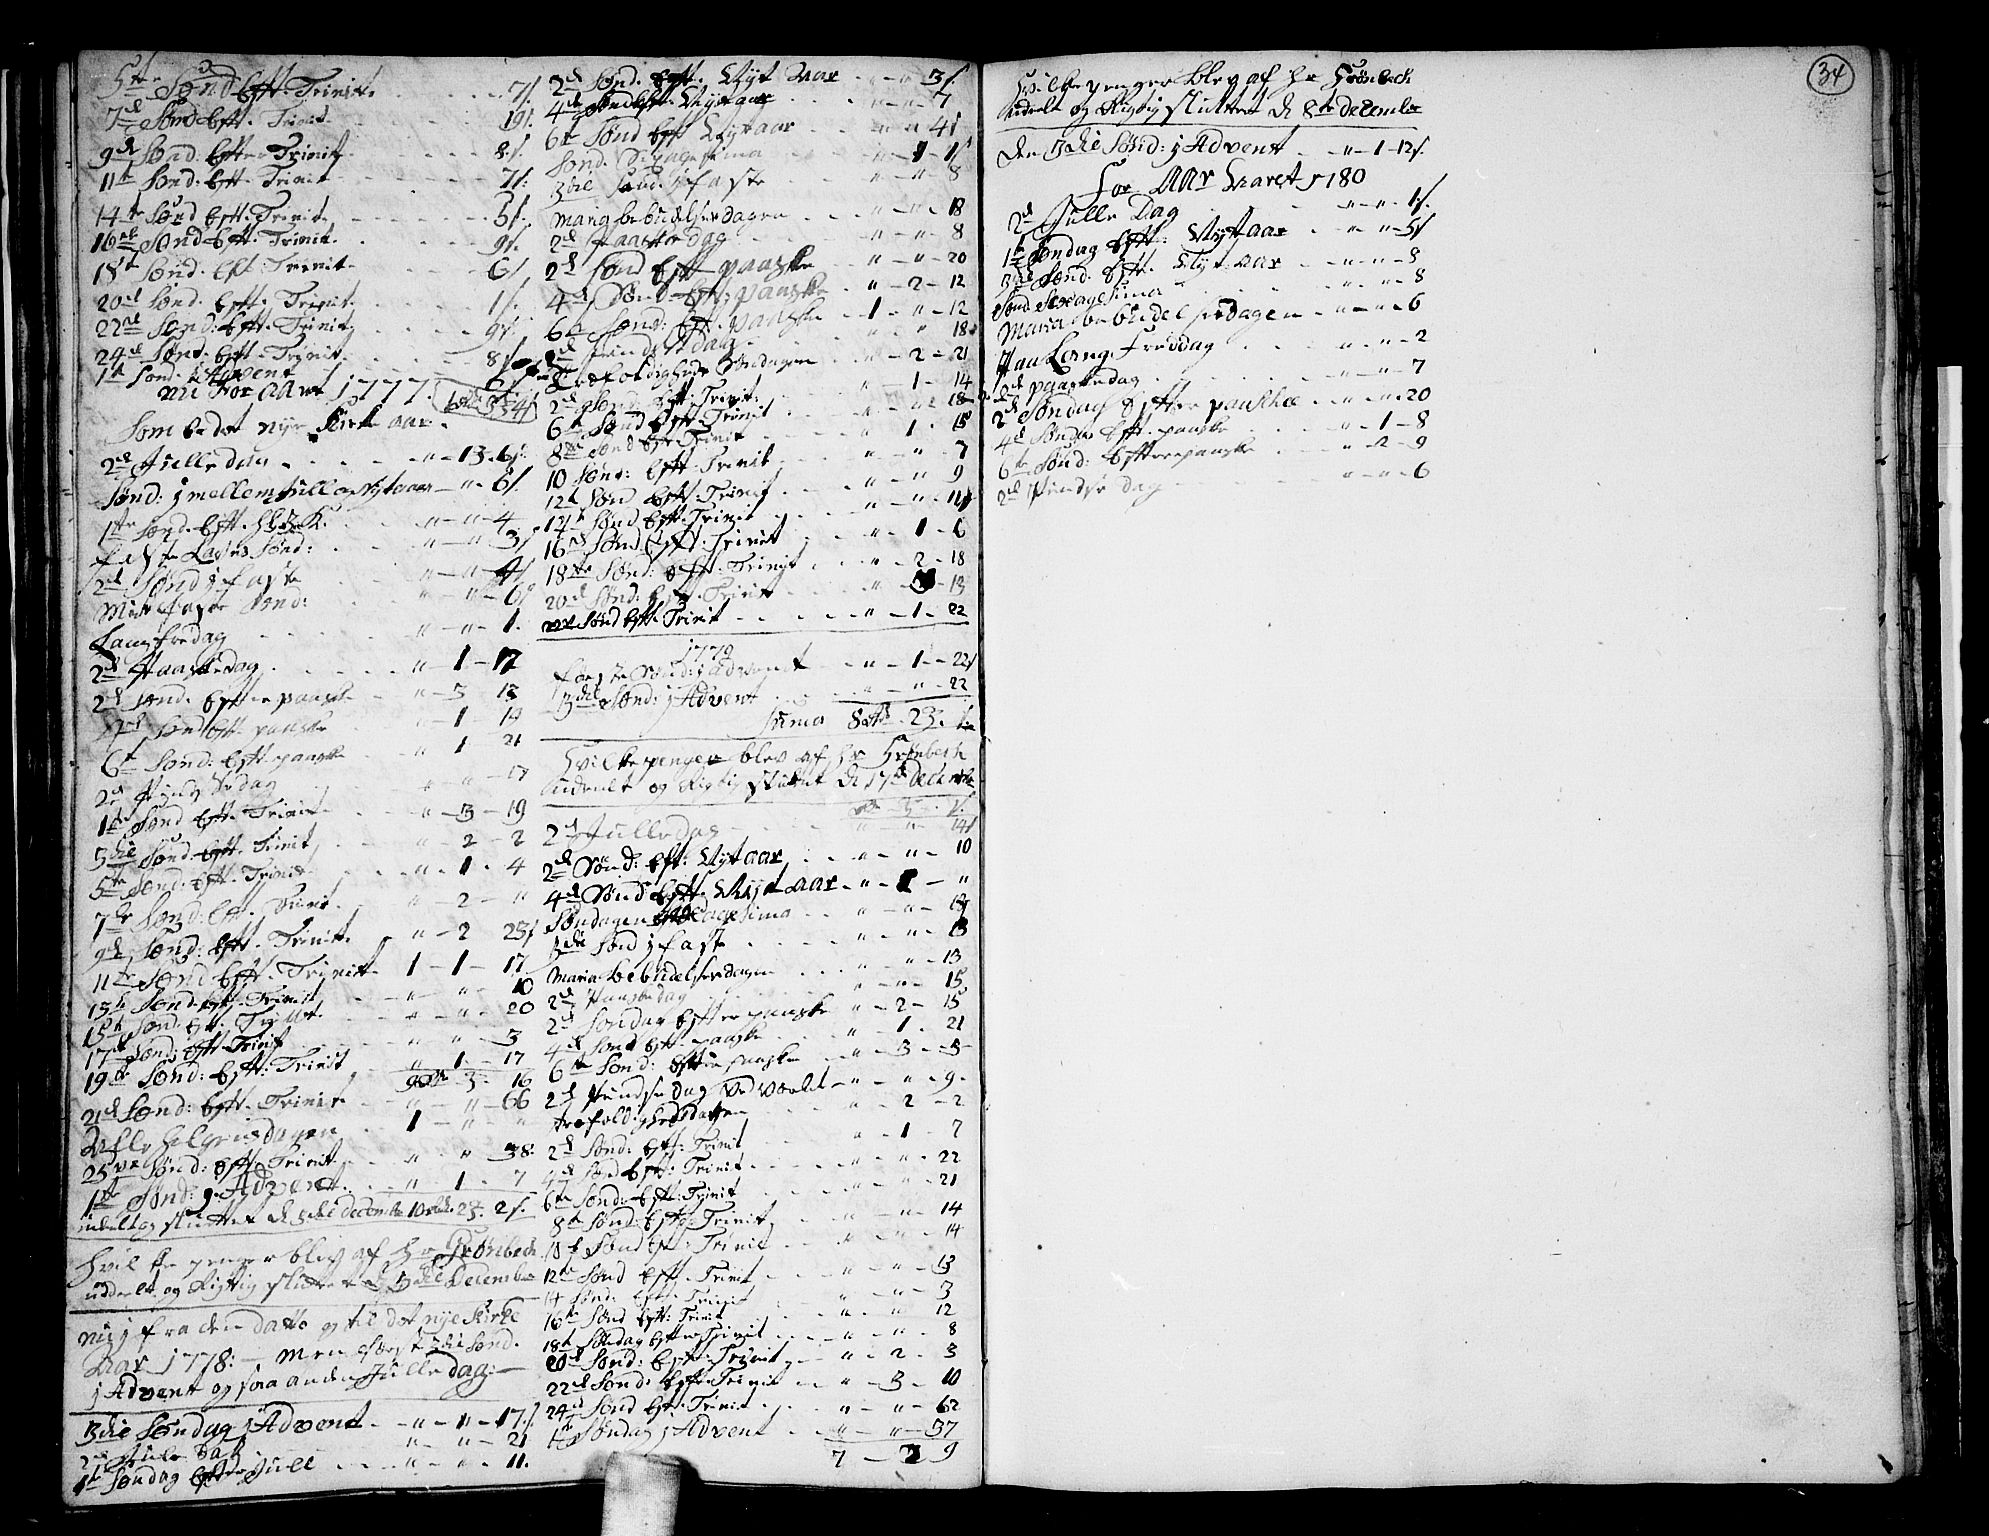 5te Sønd Efft. Trinit. 7 s.
7de Sønd Efft. Trinit. 19 s.
9de Sønd: Effter Trinit. 8 s.
11te Sønd: Efft. Trinit 7 s.
14te Sønd Efft: Trinit. 5 s.
16ten Sønd Efft. Trinit. 9 s.
18te Sønd: Efft Trinit 6 s.
20de Sønd. Efft. Trinit. 1 s.
22de Sønd: Efft. Trinit 9 s.
24de Sønd: Efft. Trinit. 8 s.
1te Sønd: j Advent 6 s.
nu For Aaret 1777.
Som er det nye Kirke aar.
2de Julledag " - 13 - 6 s.
Sønd: jmellem Jull og Nytaar " - 6 s.
1ste Sønd. Efft. H: 3 K. " - " - 4
Faste Laves Sønd: " - " - 3 s
2de Sønd j Faste " - " - 4 s
Mit faste Sønd: " - " - 6 s
Lang fredag " - " - 1.
2de Paaskedag " - 1 - 17
2de Sønd. Effter paaske " - 3 - 13
4de Sønd Efft paaske " - 1 - 19
6te Sønd: Efft paaske " - 1 - 21
2de Pindsedag " - " - 17
1te Sønd Efft. Trinit " - 3 - 19
3die Sønd. Efft. Trinit " - 2 - 2
5te Sønd. Efft. Trinit " - 1 - 4
7de Sønd: Efft. Trinit. " - 2 - "
9de Sønd: Efft. Trinit. " - 2 23 s
11te Sønd Efft. Trinit. 1 - 1 - 17
13te Sønd Efft. Trinit " - " - 10
15te Sønd. Efft. Trinit. " - " - 20
17de Sønd: Efft. Trinit " - " - 3
19de Sønd: Efft: Trinit " - 1 - 17
9 Rdr 3 - 16
21de Sønd: Efft. Trinit " - " - 66
Alle helgens dagen 1 - " - "
25de Sønd: Efft. Trinit " - " - 38.
1te Sønd: j Advent. " - 1 - 7
udelt og sluttet d. 3die december 10 Rdr. 23. 2 s.
Hvilke penger blev af Hr Grønbech
uddelt og Rigtig sluttet d. 3die December
nu j fra den dato og til det nye Kirke
Aar 1778: - men først 3die Sønd.
j Advent og saa anden Julledag:
3die Søndag j Advent - " - " - 17 s.
2de Julle Dag " - " - 21
1te Søndag Effter Jull " - " - 11.
2de Sønd. Efft. Nyt Aar " - " 3 s
4de Sønd Efft Nyt aar " - " - 7
6te Sønd Efft Nyt aar " - " 4 s
Sønd. Sexagesima " - 1 - 1 s
3die Sønd. j faste " - " - 8
Mariæ bebudelses dagen " - " - 18
2de Paaskedag " - " - 8
2de Sønd Efft paaske " - " - 20
4de Sønd Efft paaske " - 2 - 12
6te Sønd: Efft. paaske 1 - " - 12
2de Pindsedag " " 18
Trefoldigheds Søndagen " - 2 - 21
2de Sønd Efft. Trinit. " - 1 - 14
" - " 18
6te Sønd Efft. Trinit " 1 - 15
8de Sønd Efft Trinit " - " - 7
10 Sønd: Efft. Trinit " - " 9
12te Sønd Efft. Trinit " - " - 11
14te Sønd Efft. Trinit " - 1 - 6
16de Sønd Efft. Trinit " - 2 - 18
18de Sønd: Efft. Trinit " - 3 - 13
20de Sønd: Efft. Trinit
22 Sønd Efft. Trinit " - 1 - 22
1779
første Sønd: j Advent " - 1 - 22 s
3die Sønd: j Advent " - " - 22
Suma 8 Rdr - 23.
Hvilke penger blev af Hr Grønbech
Uddeelt og Rigtig sluttet d. 17de December
2de Julledag " - " - 14 s
2de Sønd: Efft: Nyt aar " - " - 10
4de Sønd Efft. Nyt aar " - 1 - "
Søndagen Sexagesima " - " - 19
3die Sønd j faste " - " - 13
Maria bebudelses dagen " - " - 13
2de Paaskedag " - " - 15
2de Søndag Effter paaske " - 2 - 15
4de Sønd Efft paaske " - 1 - 21
6te Sønd: Effter paaske " - 3 - 3
2de Pindse dag " - " - 9.
trefoldigheds dagen " - 2 - 2
2de Sønd: Efft: Trinit " - 1 - 7
4de Sønd Efft: Trinit " - " - 22
6te Sønd: Efft. Trinit " - " - 21
8te Sønd: Efft: Trinit " - " - 14
10de Sønd Efft. Trinit " - " - 14
12te Sønd Efft. Trinit " - " - 13
14 Sønd: Efft. Trinit " - " - 3
16te Sønd Efft. Trinit " - " 12
18te Søndag Effter Trinit " - " - 8
20de Sønd: Efft. Trinit " - 2 - 3
22de Sønd: Efft. Trinit " - 3 - 10
24de Sønd Efft. Trinit " - " - 62
1te Søndag j Advent " - " - 37
7 - 2 9
34
Hvilke penger blev af Hr Grönbech
Udeelt og Rigtig sluttet d 8te December
Den 3die Sønd: j Advent " - 1 - 12 s.
For AAr Haret 1780
2de Julle Dag " - " - 1 s
1te Søndag Efft: Nyt aar " - " - 5 s
3die Sønd. Efft. Nyt aar " - " - 9
Sønd Sexagesima " - " - 8
Maria bebudelsesdagen " - " - 6
Paa Lang. Fredag " - " - 2
2de paaskedag " - " - 7
2de Søndag Effter paaske " - " - 20
4de Sønda Efft. paaske " - 1 - 8
6te Sønd: Effter paaske " - 2 - 9
2de Pindse dag " - " - 6